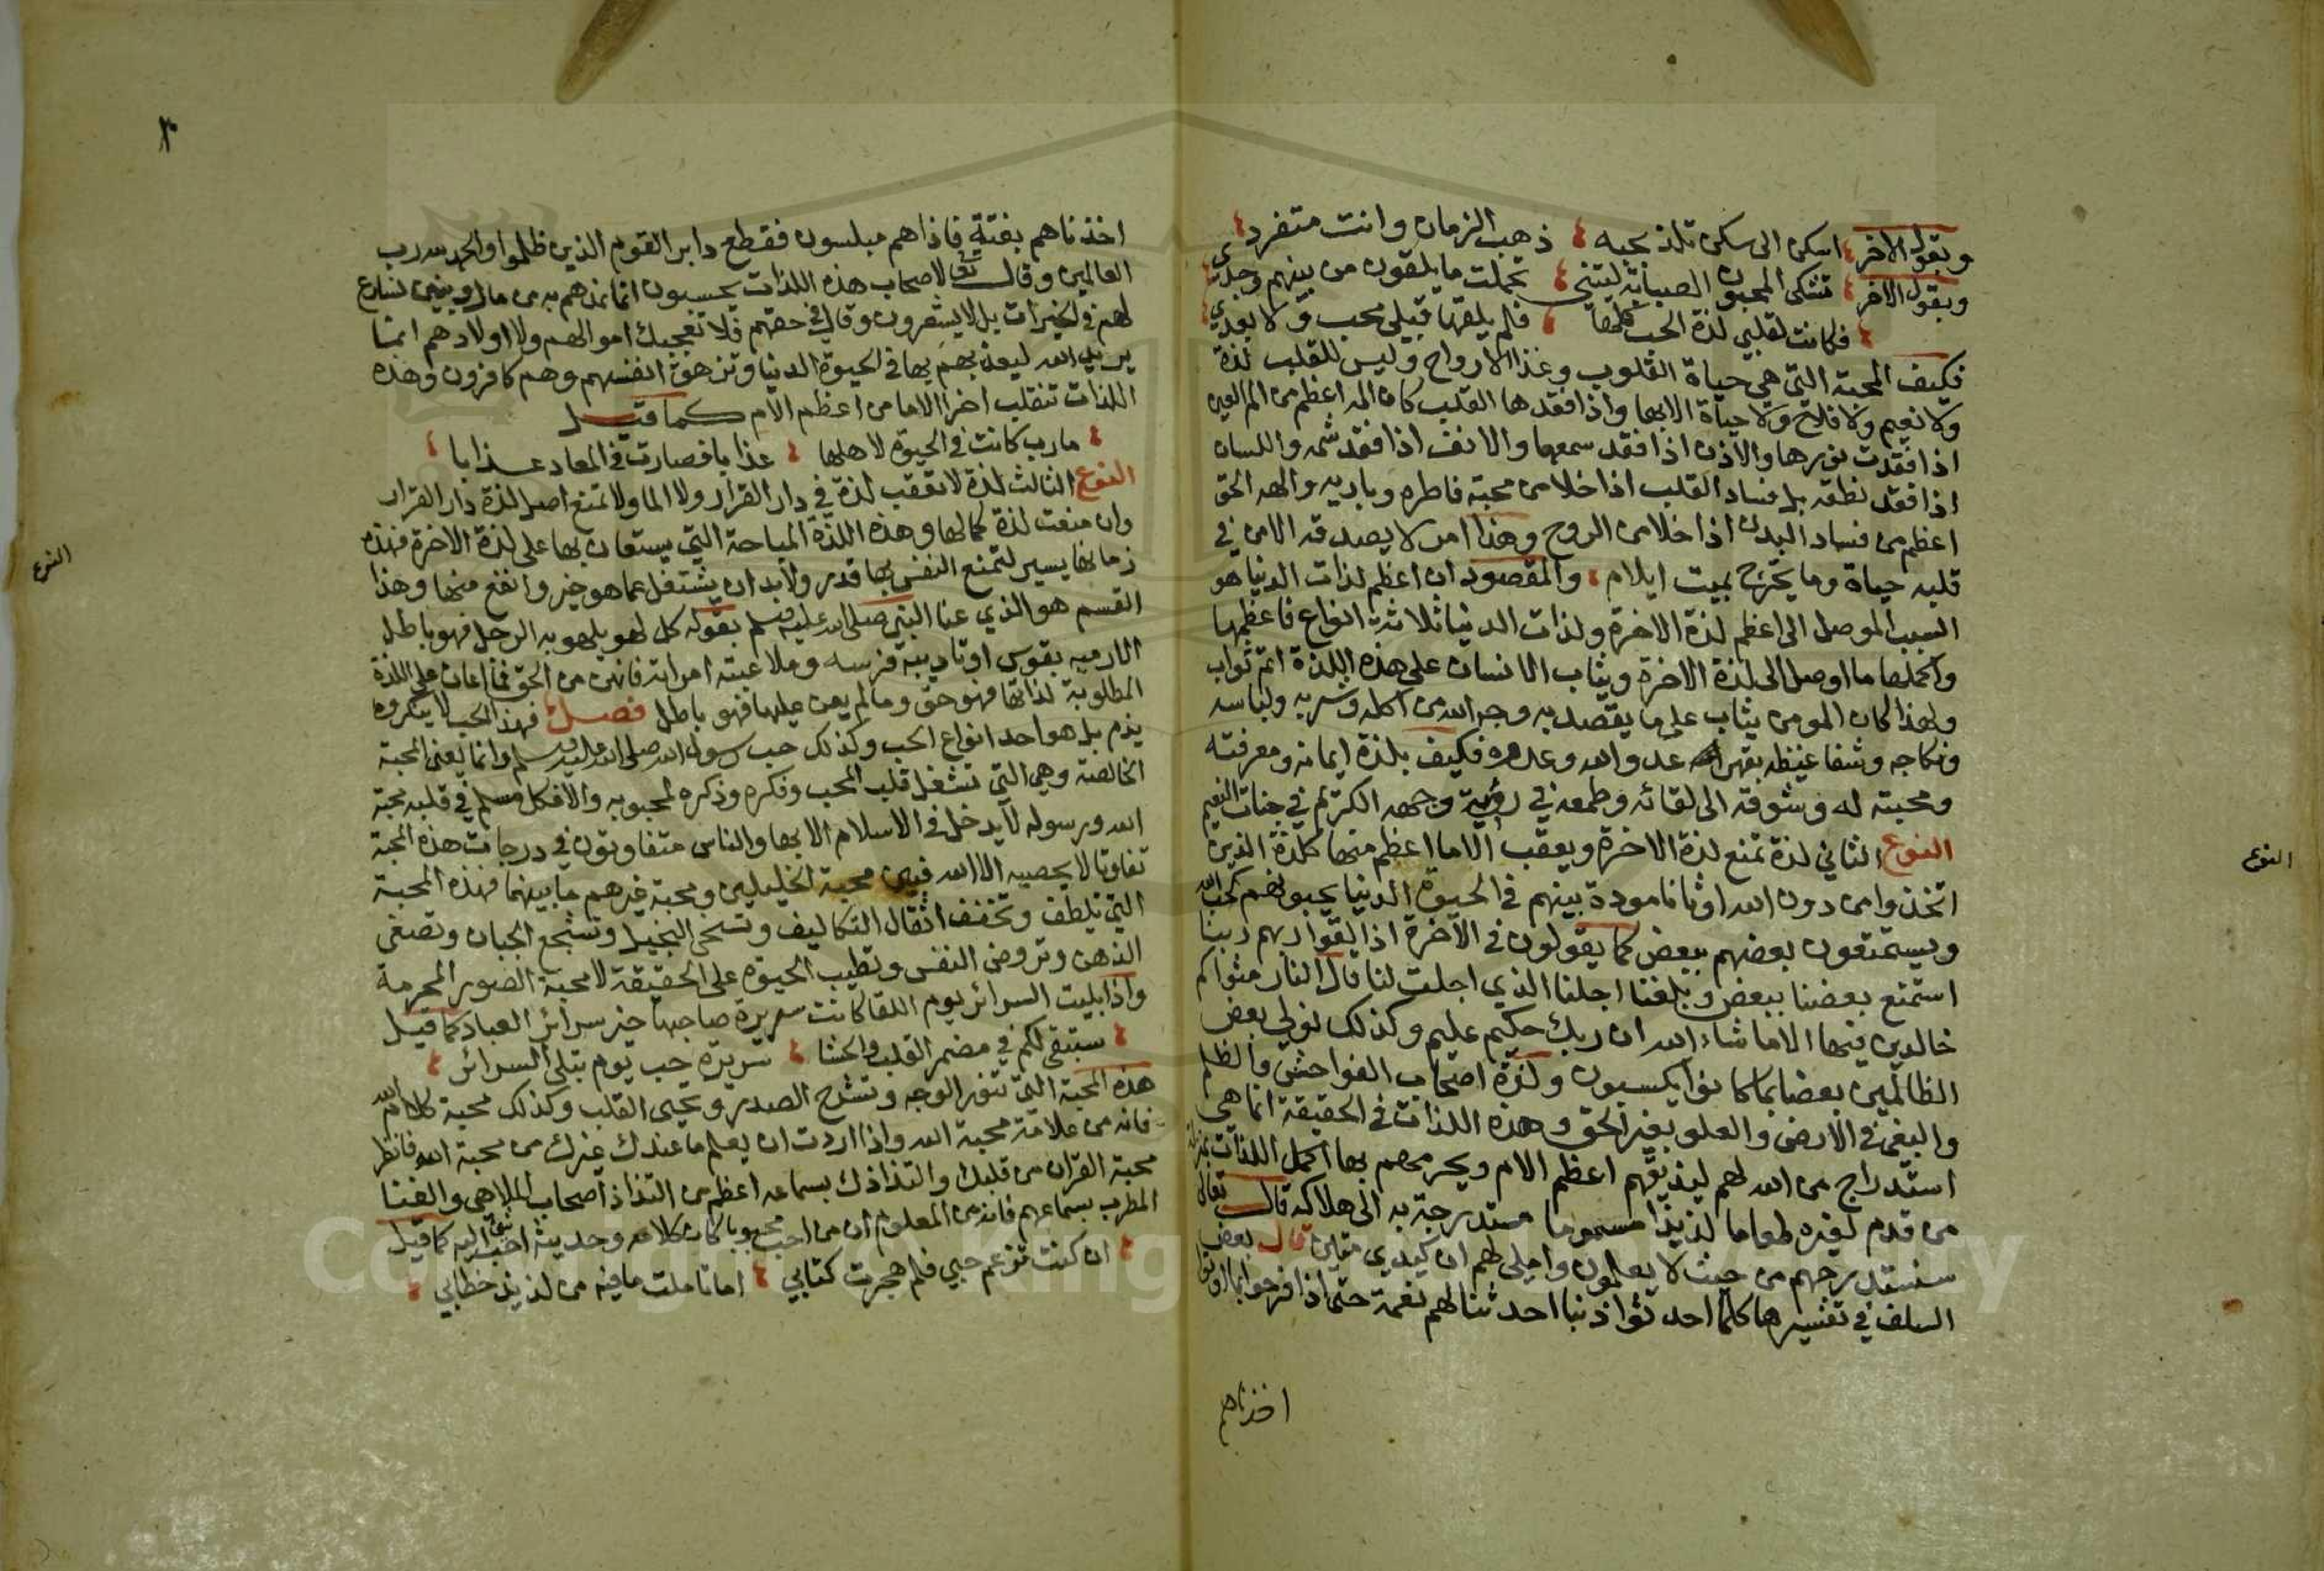 ويقول الاخر اسكن الى سكن تلذ بحبه ذهب الزمان وانت متفرد
ويقول الاخر تشكى المحبون الصبابة ليتني تحملت ما يلقون من بينهم وحدي
فكانت لقلبي لذة الحب كلها فلم يلقها قبلي محب ولا بعدي
فكيف المحبة التي هي حياة القلوب وغذا الارواح وليس للقلب لذة
ولا نعيم ولا فلاح ولا حياة الا بها واذا فقدها القلب كان المه اعظم من الم العين
اذا فقدت نورها والاذن اذا فقد سمعها والانف اذا فقد شمه واللسان
اذا فقد نطقه بل فساد القلب اذا خلا من محبة فاطره وباريه والهه الحق
اعظم من فساد البدن اذا خلا من الروح وهذا امر لا يصدقه الا من في
قلبه حياة وما بجرح بميت ايلام والمقصود ان اعظم لذات الدنيا هو
السبب الموصل الى اعظم لذة الاخرة ولذات الدنيا ثلاثة انواع فاعظمها
واكملها ما اوصل الى لذة الاخرة ويثاب الانسان على هذه اللذة اتم ثواب
ولهذا كان المومن يثاب على ما يقصد به وجه الله من اكله وشربه ولباسه
ونكاحه وشفا غيظه بقهر عدو الله وعدوه فكيف بلذة ايمانه ومعرفته
ومحبته له وشوقه الى لقائه وطمعه في رؤية وجهه الكريم في جنات النعيم
النوع الثاني لذة تمنع لذة الاخرة ويعقب الاما اعظم منها كلذة الذين
اتخذوا من دون الله اوثانا مودة بينهم في الحيوة الدنيا يحبونهم كحب الله
ويستمتعون بعضهم ببعض كما يقولون في الاخرة اذا لقوا ربهم ربنا
استمتع بعضنا ببعض وبلغنا اجلنا الذي اجلت لنا قال النار مثواكم
خالدين فيها الا ما شاء الله ان ربك حكيم عليم وكذلك نولي بعض
الظالمين بعضا بما كانوا يكسبون ولذة اصحاب الفواحش والظلم
والبغي في الارض والعلو بغير الحق وهذه اللذات في الحقيقة انما هي
استدراج من الله لهم ليذيقهم اعظم الالام ويحرمهم بها اكمل اللذات بمنزلة
من قدم لغيره طعاما لذيذا مسموما مستدرجة به الى هلاكه قال تعالى
سنستدرجهم من حيث لا يعلمون واملي لهم ان كيدي متين قال بعض
السلف في تفسيرها كلما احدثوا ذنبا احدثنا لهم نعمة حتى اذا فرحوا بما اوتوا
اخذناهم
النوع
اخذناهم بغتة فاذا هم مبلسون فقطع دابر القوم الذين ظلموا والحمد لله رب
العالمين وقال تعالى لاصحاب هذه اللذات يحسبون انما نمدهم به من مال وبنين نسارع
لهم في الخيرات بل لا يشعرون وقال في حقهم فلا تعجبك اموالهم ولا اولادهم انما
يريد الله ليعذبهم بها في الحيوة الدنيا وتزهق انفسهم وهم كافرون وهذه
اللذات تنقلب اخرا الاما من اعظم الالام كما قيل
مارب كانت في الحيوة لاهلها عذابا فصارت في المعاد عذابا
النوع الثالث لذة لا تعقب لذة في دار القرار ولا الما ولا تمنع اصل لذة دار القرار
وان منعت لذة كمالها وهذه اللذة المباحة التي يستعان بها على لذة الاخرة فهذه
زمانها يسير لتمتع النفس بها قدر ولا بد ان يشتغل عما هو خير وانفع منها وهذا
القسم هو الذي عنا النبي صلى الله عليه وسلم بقوله كل لهو يلهو به الرجل فهو باطل
الا رميه بقوس او تاديبه فرسه وملاعبته امراته فانهن من الحق فما اعان على اللذة
المطلوبة لذاتها فهو حق وما لم يعن عليها فهو باطل فصل فهذا الحب لا ينكر ولا
يذم بل هو احد انواع الحب وكذلك حب رسول الله صلى الله عليه وسلم وانما يعني المحبة
الخالصة وهي التي تشغل قلب المحب وفكره وذكره لمحبوبه والا فكل مسلم في قلبه محبة
الله ورسوله لا يدخل في الاسلام الا بها والناس متفاوتون في درجات هذه المحبة
تفاوتا لا يحصيه الا الله فبين محبة الخليلين ومحبة غيرهم ما بينهما فهذه المحبة
التي تلطف وتخفف اثقال التكاليف وتسخي البخيل وتشجع الجبان وتصفي
الذهن وتروض النفس وتطيب الحيوة على الحقيقة لا محبة الصور المحرمة
واذا بليت السرائر يوم اللقا كانت سريرة صاحبها خير سرائر العباد كما قيل
ستبقى لكم في مضمر القلب والحشا سريرة حب يوم تبلى السرائر
هذه المحبة التي تنور الوجه وتشرح الصدر وتحيى القلب وكذلك محبة كلام الله
فانه من علامة محبة الله واذا اردت ان يعلم ما عندك غيرك من محبة الله فانظر
محبة القران من قلبك والتذاذك بسماعه اعظم من التذاذ اصحاب الملاهي والغنا
المطرب بسماعهم فانه من المعلوم ان من احب محبوبا كان كلامه وحديثه احب شئ اليه كما قيل
ان كنت تزعم حبي فلم هجرت كتابي اما تاملت ما فيه من لذيذ خطابي
النوع